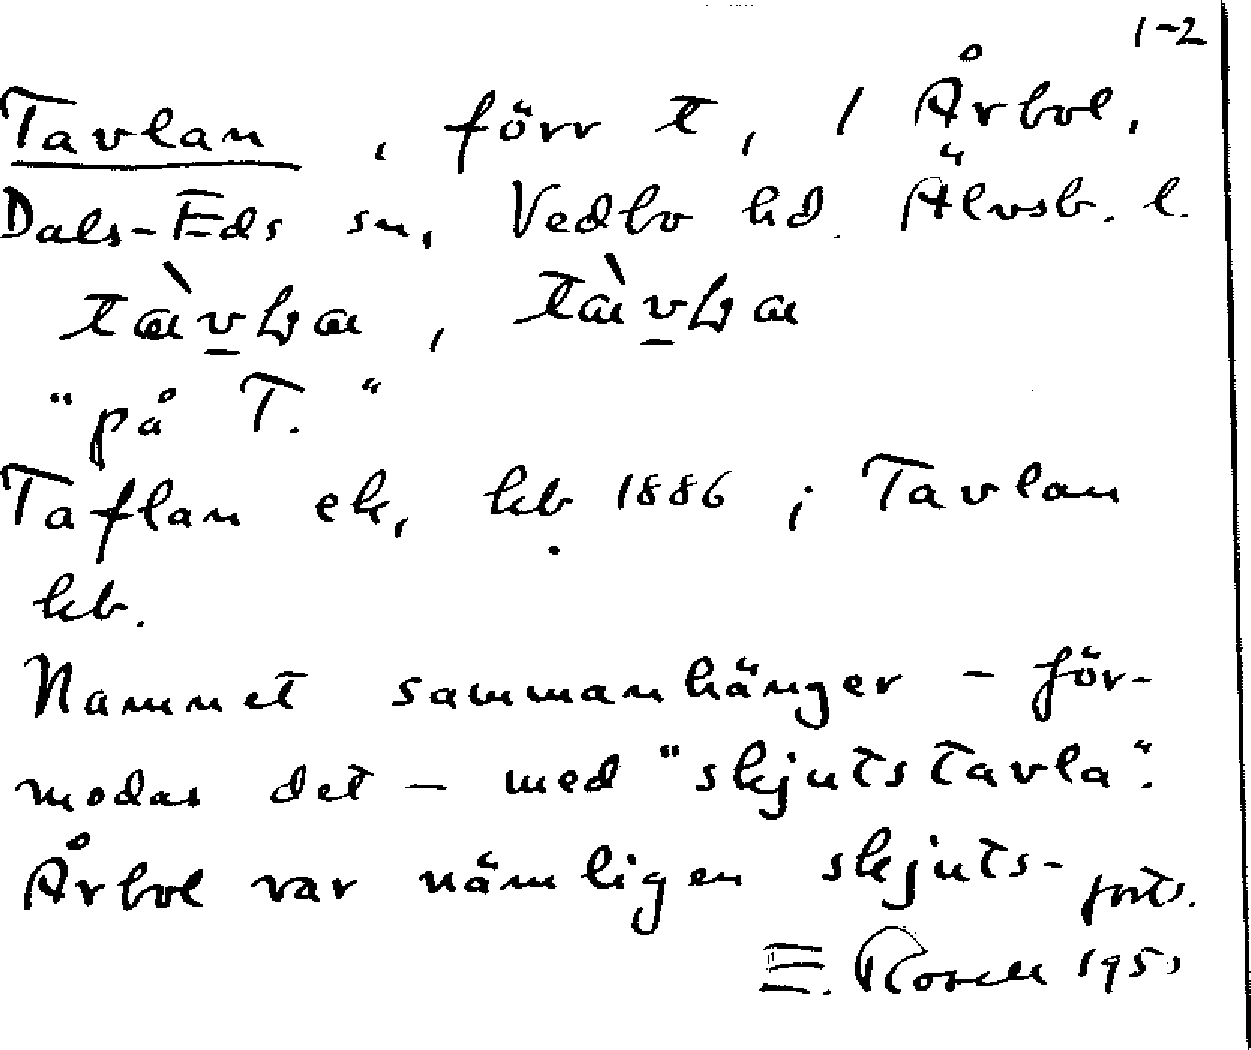 1-2
Tavlan, förr t, 1 Årbol,
Dals-Eds sn, Vedbo hd. Älvsb. l.
"på T."
Taflan ek, kb 1886; Tavlan
kb.
Namnet sammanhänger - för-
modas det - med "skjutstavla".
Årbol var nämligen skjuts-
forts.
E. Rosell 195